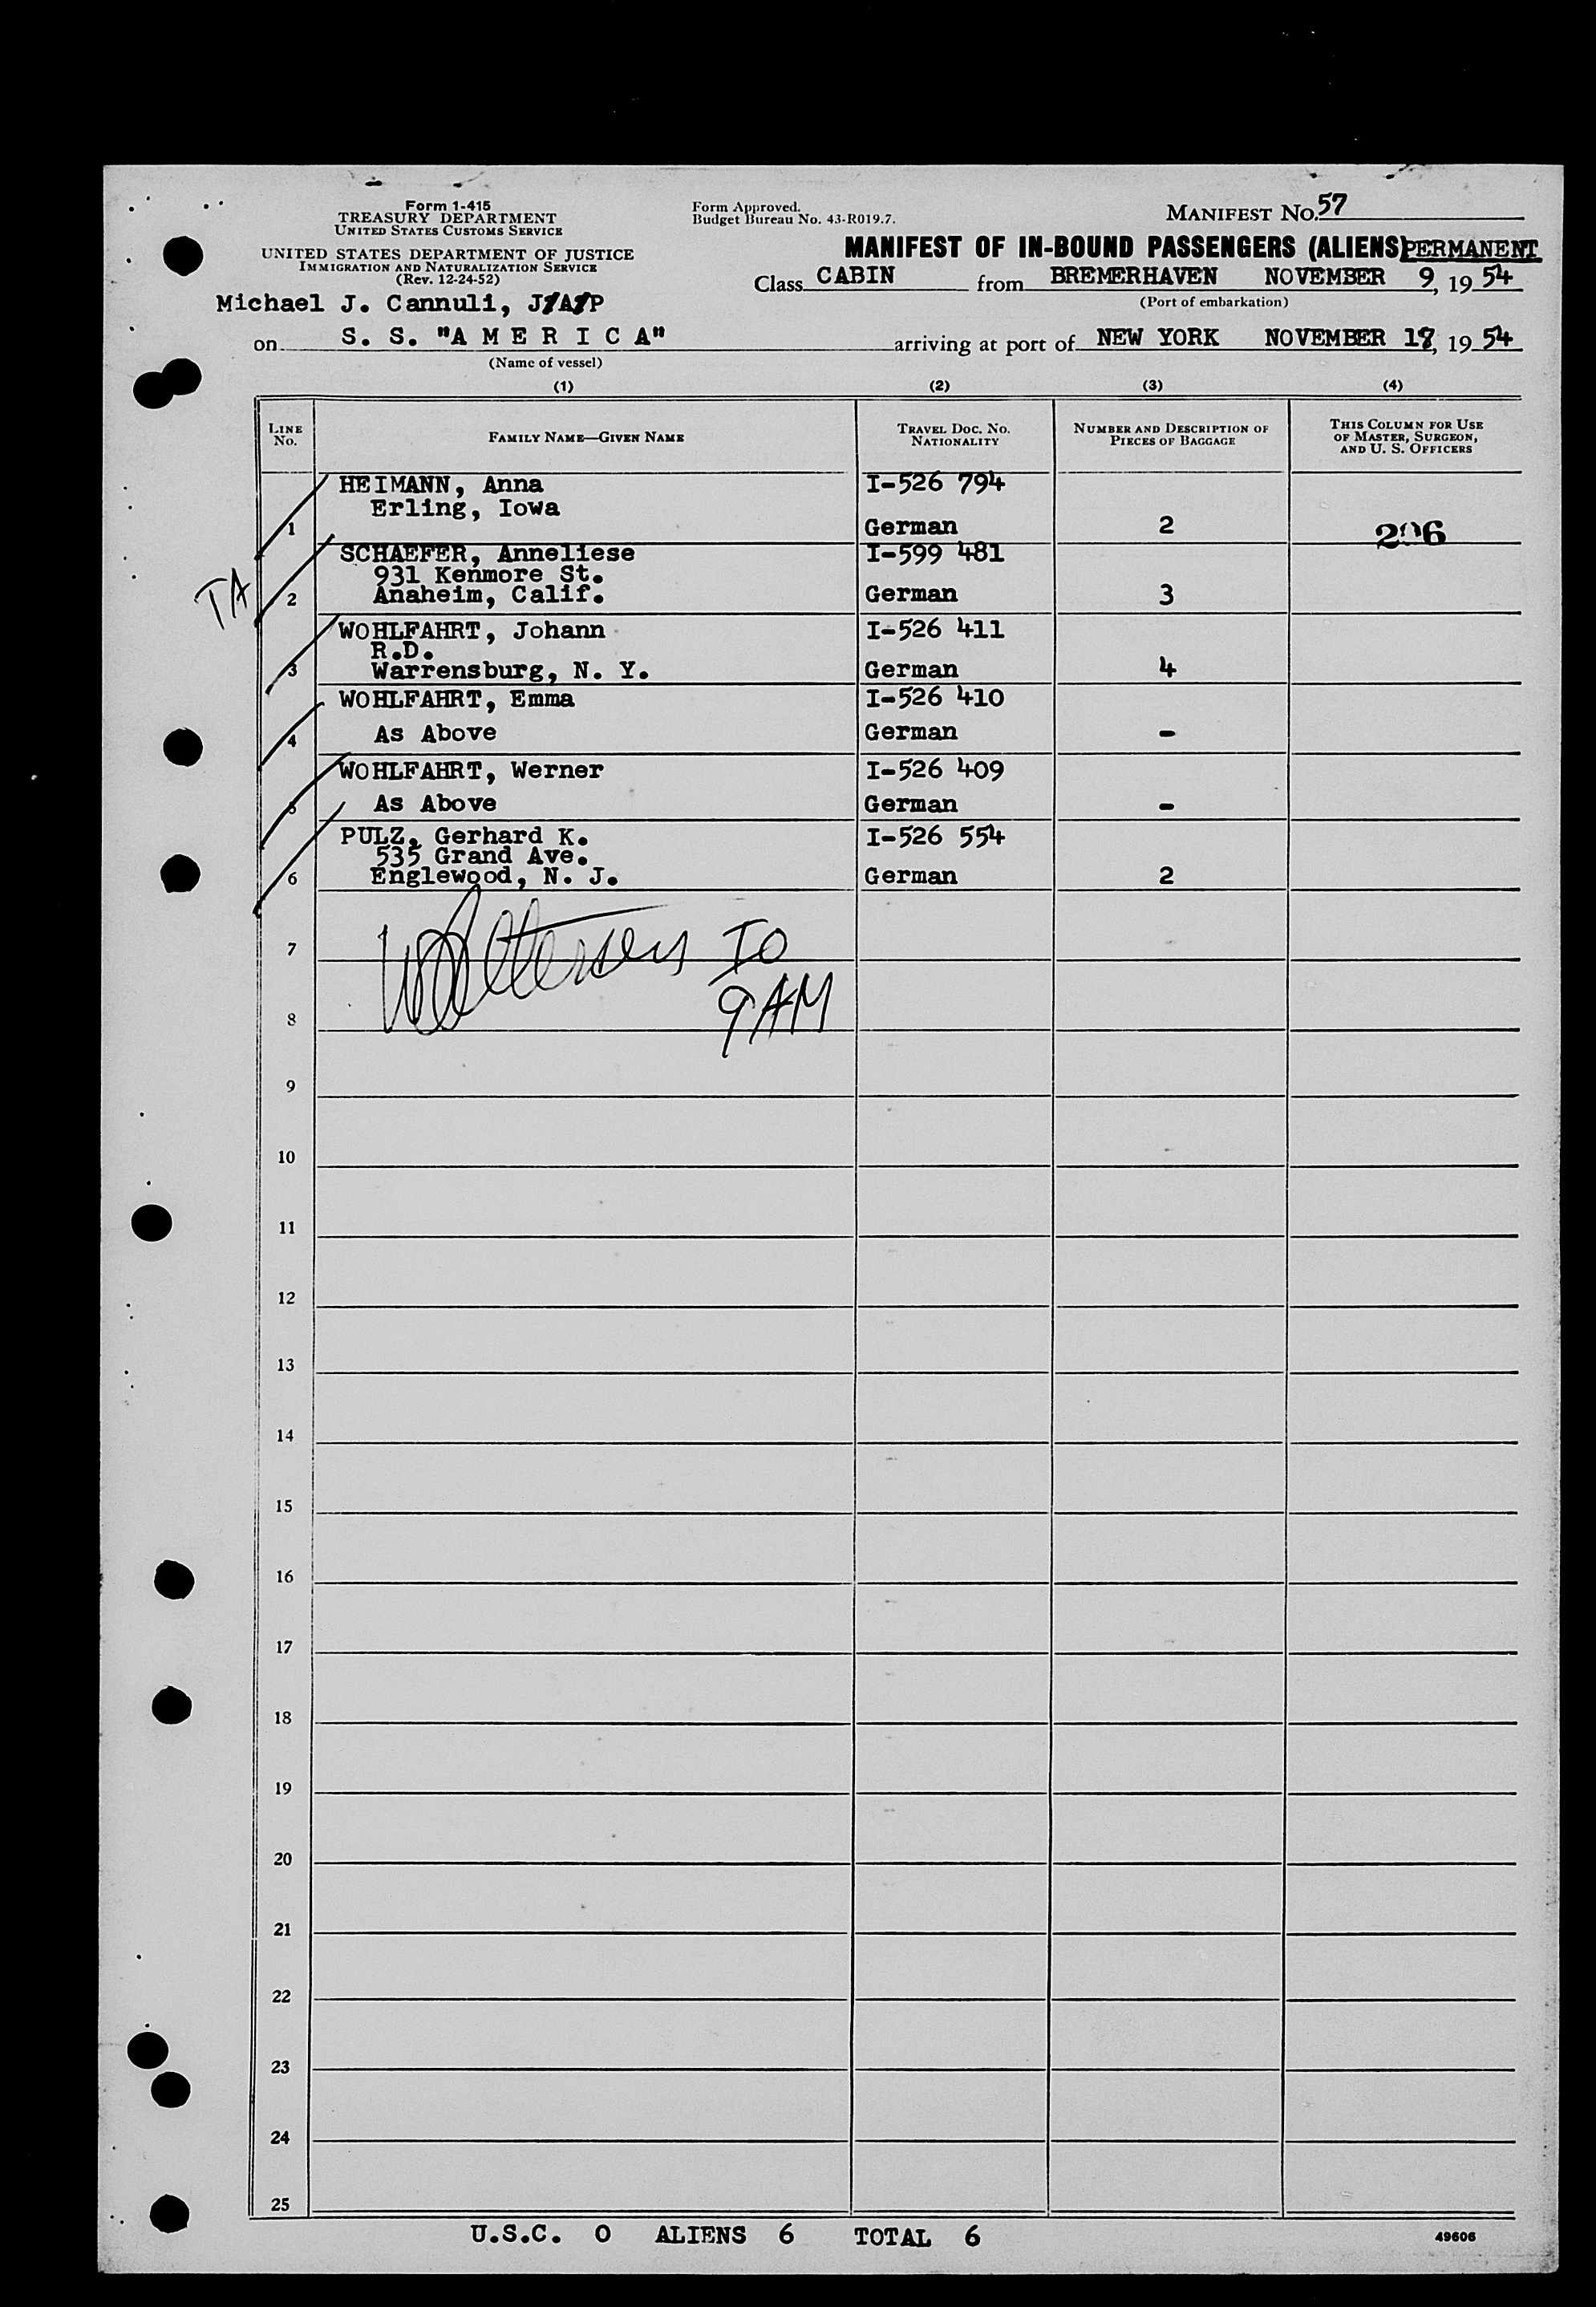 Form 1-415
TREASURY DEPARTMENT
UNITED STATES CUSTOMS SERVICE
UNITED STATES DEPARTMENT OF JUSTICE
IMMIGRATION AND NATURALIZATION SERVICE
(Rev. 12-24-52)
Form Approved.
Budget Bureau No. 43-R019.7.
MANIFEST No. 57
MANIFEST OF IN-BOUND PASSENGERS (ALIENS) PERMANENT
Class CABIN from BREMERHAVEN NOVEMBER 9, 1954
(Port of embarkation)
Michael J. Cannuli, J/A/P
on S. S. "A M E R I C A" arriving at port of NEW YORK NOVEMBER 18, 1954
(Name of vessel)
(1) (2) (3) (4)
LINE No. FAMILY NAME—GIVEN NAME TRAVEL DOC. No. NATIONALITY NUMBER AND DESCRIPTION OF PIECES OF BAGGAGE THIS COLUMN FOR USE OF MASTER, SURGEON, AND U. S. OFFICERS
HEIMANN, Anna I-526 794
Erling, Iowa
1 German 2 206
SCHAEFER, Anneliese I-599 481
931 Kenmore St.
TA 2 Anaheim, Calif. German 3
WOHLFAHRT, Johann I-526 411
R.D.
3 Warrensburg, N. Y. German 4
WOHLFAHRT, Emma I-526 410
4 As Above German -
WOHLFAHRT, Werner I-526 409
5 As Above German -
PULZ, Gerhard K. I-526 554
535 Grand Ave.
6 Englewood, N. J. German 2
7 IO
8 9AM
9
10
11
12
13
14
15
16
17
18
19
20
21
22
23
24
25
U.S.C. 0 ALIENS 6 TOTAL 6
49606